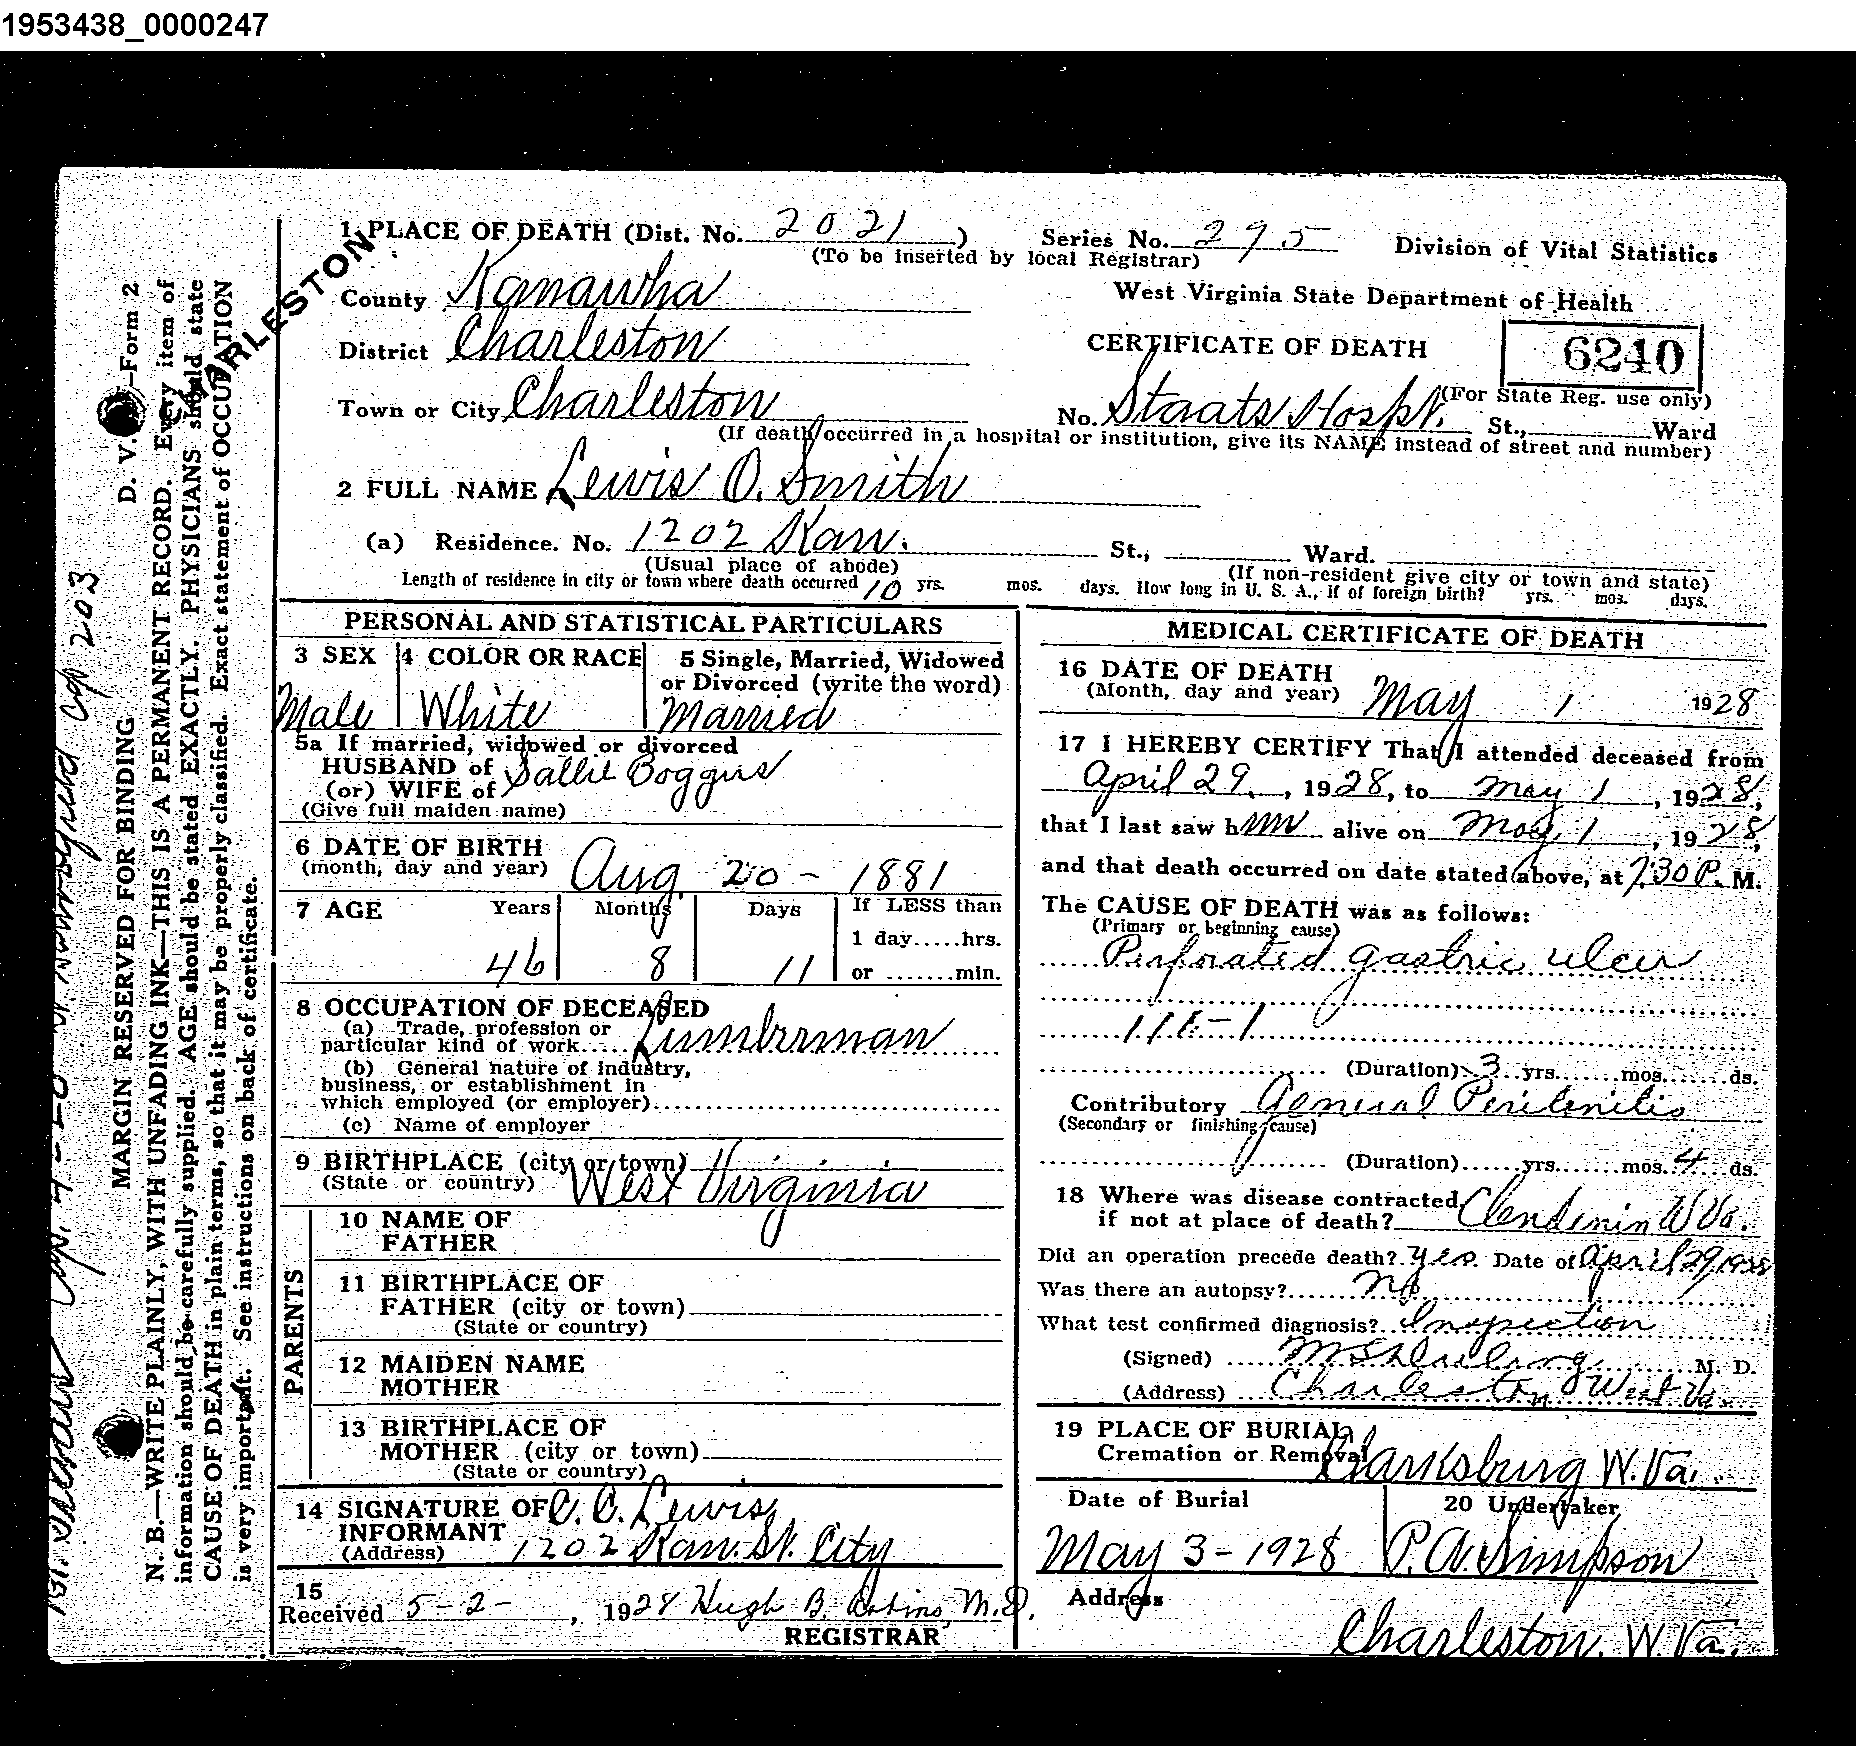 1953438_0000247
1 PLACE OF DEATH (Dist. No. 2021 ) Series No. 295 Division of Vital Statistics
(To be inserted by local Registrar)
CHARLESTON
County Kanawha West Virginia State Department of Health
District Charleston CERTIFICATE OF DEATH 6240
(For State Reg. use only)
Town or City Charleston No. Staats Hospt. St., Ward
(If death occurred in a hospital or institution, give its NAME instead of street and number)
2 FULL NAME Lewis O. Smith
(a) Residence. No. 1202 Kan. St., Ward.
(Usual place of abode) (If non-resident give city or town and state)
Length of residence in city or town where death occurred 10 yrs. mos. days. How long in U. S. A., if of foreign birth? yrs. mos. days.
PERSONAL AND STATISTICAL PARTICULARS
3 SEX 4 COLOR OR RACE 5 Single, Married, Widowed
or Divorced (write the word)
Male White Married
5a If married, widowed or divorced
HUSBAND of Sallie Boggus
(or) WIFE of
(Give full maiden name)
6 DATE OF BIRTH
(month, day and year) Aug. 20 - 1881
7 AGE Years Months Days If LESS than
1 day.....hrs.
46 8 11 or .......min.
8 OCCUPATION OF DECEASED
(a) Trade, profession or
particular kind of work..... Lumberman
(b) General nature of industry,
business, or establishment in
which employed (or employer)
(c) Name of employer
9 BIRTHPLACE (city or town)
(State or country) West Virginia
PARENTS
10 NAME OF
FATHER
11 BIRTHPLACE OF
FATHER (city or town)
(State or country)
12 MAIDEN NAME
MOTHER
13 BIRTHPLACE OF
MOTHER (city or town)
(State or country)
14 SIGNATURE OF O. C. Lewis
INFORMANT
(Address) 1202 Kan. St. City
15
Received 5-2- , 1928 Hugh B. Robins, M.D.
REGISTRAR
MEDICAL CERTIFICATE OF DEATH
16 DATE OF DEATH
(Month, day and year) May 1 1928
17 I HEREBY CERTIFY That I attended deceased from
April 29, , 1928, to May 1 , 1928,
that I last saw him alive on May 1 , 1928,
and that death occurred on date stated above, at 7:30 P. M.
The CAUSE OF DEATH was as follows:
(Primary or beginning cause)
Perforated gastric ulcer
111-1
(Duration) 3 yrs.......mos.......ds.
Contributory General Peritonitis
(Secondary or finishing cause)
(Duration)......yrs.......mos. 4 ds.
18 Where was disease contracted
if not at place of death? Clendenin W Va.
Did an operation precede death? yes. Date of April 29, 1928
Was there an autopsy? No
What test confirmed diagnosis? Inspection
(Signed) M. D.
(Address) Charleston West Va.
19 PLACE OF BURIAL,
Cremation or Removal Clarksburg W. Va.
Date of Burial 20 Undertaker
May 3 - 1928 P. A. Simpson
Address
Charleston, W. Va.
D. V. S.—Form 2
MARGIN RESERVED FOR BINDING
N. B.—WRITE PLAINLY, WITH UNFADING INK—THIS IS A PERMANENT RECORD. Every item of
information should be carefully supplied. AGE should be stated EXACTLY. PHYSICIANS should state
CAUSE OF DEATH in plain terms, so that it may be properly classified. Exact statement of OCCUPATION
is very important. See instructions on back of certificate.